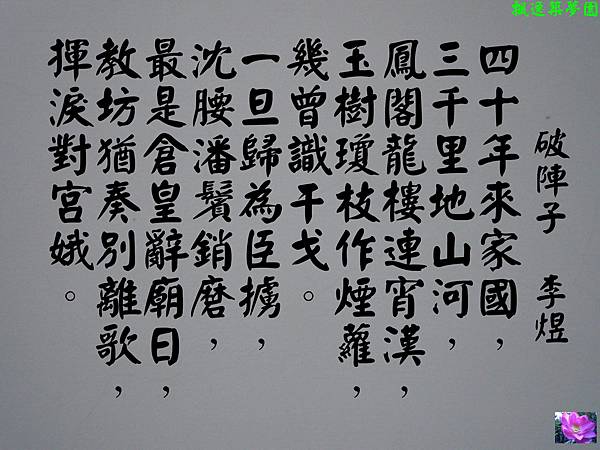 飄逸築夢園
破陣子 李煜
四十年來家國,
三千里地山河,
鳳閣龍樓連宵漢,
玉樹瓊枝作煙蘿,
幾曾識干戈。
一旦歸為臣擄,
沈腰潘鬢銷磨,
最是倉皇辭廟日,
教坊猶奏別離歌,
揮淚對宮娥。